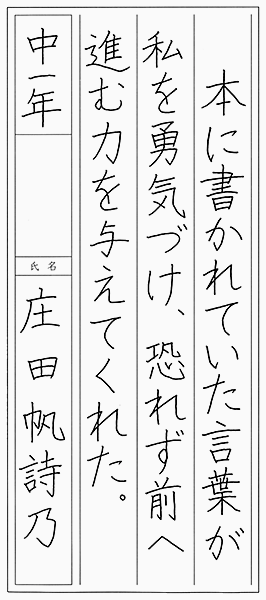 本に書かれていた言葉が
私を勇気づけ、恐れず前へ
進む力を与えてくれた。
中一年
氏名
庄田帆詩乃